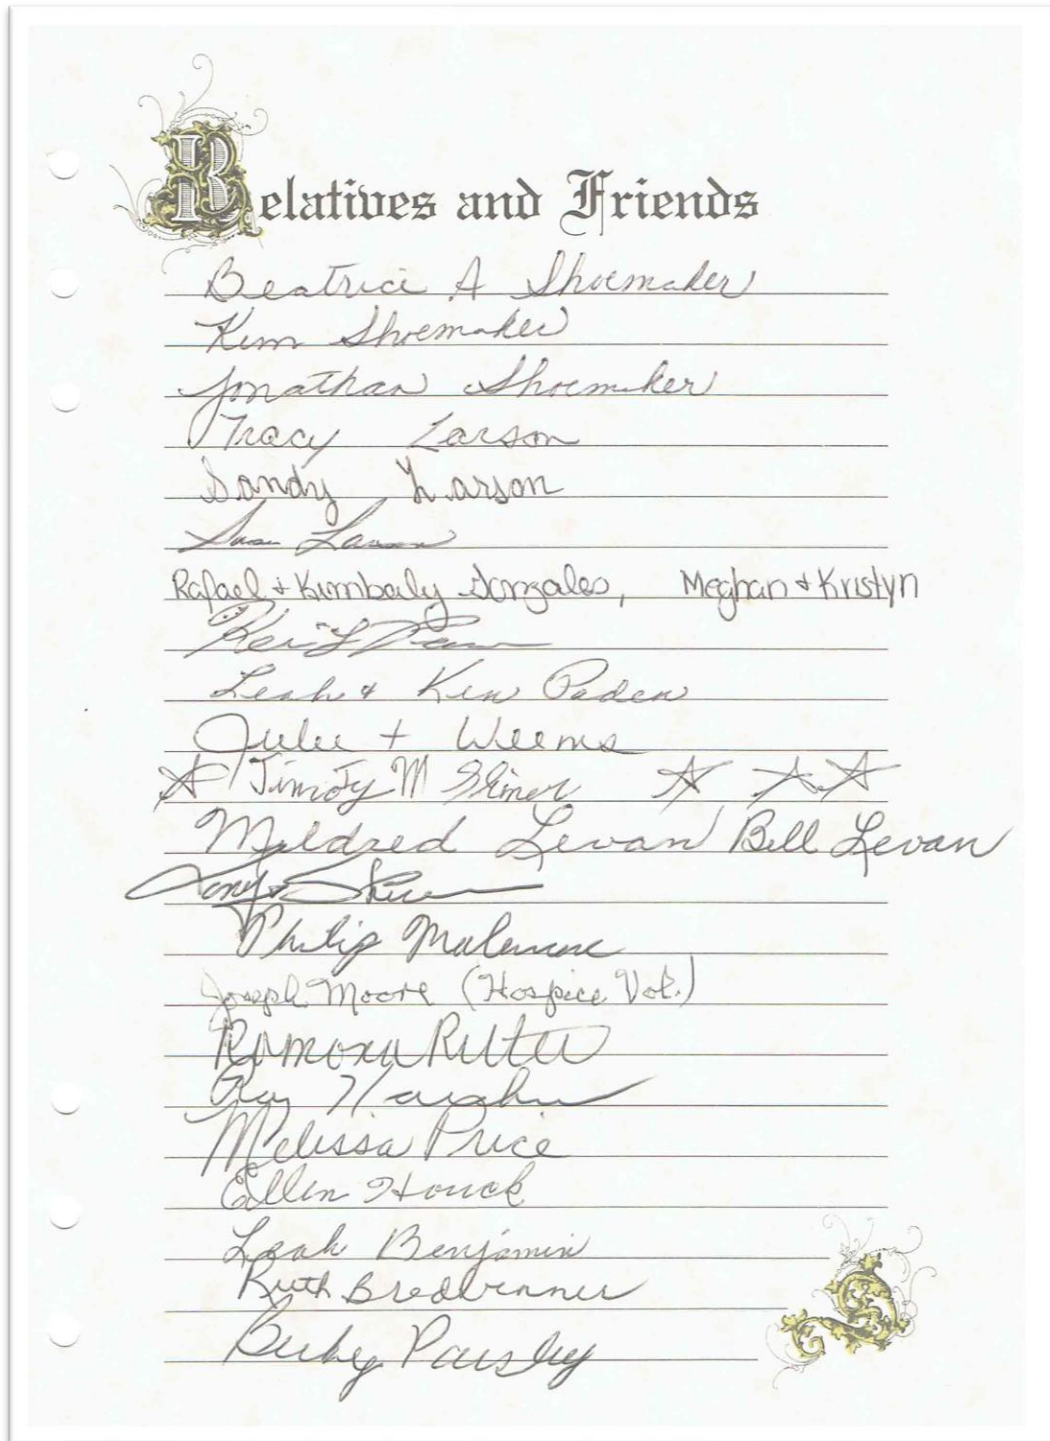 Relatives and Friends
Beatrice A Shoemaker
Kim Shoemaker
Jonathan Shoemaker
Tracy Larson
Sandy Larson
Larson
Rafael + Kimberly Gonzales, Meghan + Kristyn
Leah & Ken Paden
Julie + Weems
Timoty M
Mildred Levan Bill Levan
Philip
Joseph Moore (Hospice Vol.)
Ramona Rutter
Ray
Melissa Price
Ellen Houck
Leah Benjamin
Ruth Bredbenner
Becky Parsley